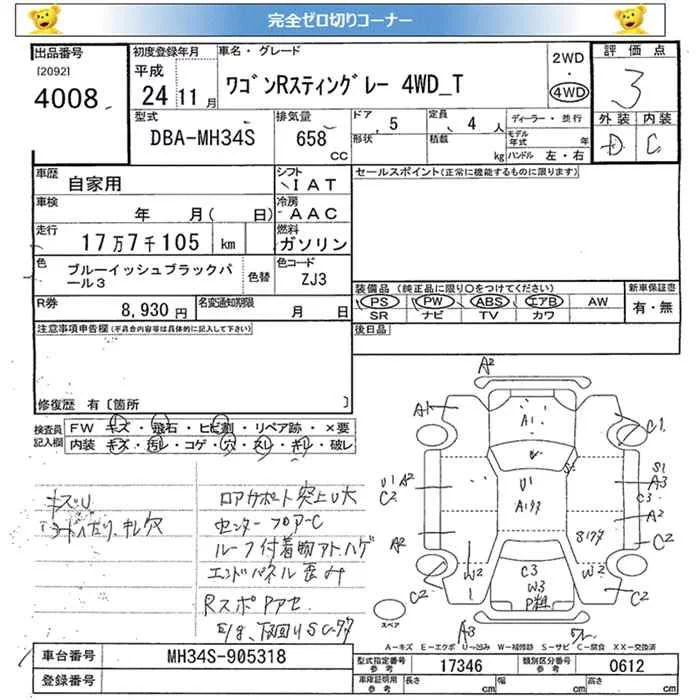 完全ゼロ切りコーナー
出品番号
[2092]
4008
初度登録年月
平成
24 11月
車名・グレード
ワゴンRスティングレー 4WD_T
2WD
・
4WD
評価点
3
外装 内装
D C
型式
DBA-MH34S
排気量
658
CC
ドア
5
形状
定員
4 人
積載
kg
ディーラー・並行
モデル年式 年
ハンドル 左・右
車歴
自家用
シフト
IAT
車検
年 月( 日)
冷房
AAC
走行
17万7千105 km
燃料
ガソリン
色
ブルーイッシュブラックパール3
色替
色コード
ZJ3
R券
8,930円
名変通知期限
月 日
セールスポイント(正常に機能するものに限ります)
装備品 (純正品に限り○をつけてください)
PS PW ABS エアB AW
SR ナビ TV カワ
新車保証書
有・無
後日品
注意事項申告欄(不具合内容等は具体的に記入して下さい)
修復歴 有〔箇所 〕
検査員記入欄
FW キズ・飛石・ヒビ割・リペア跡・×要
内装 キズ・汚レ・コゲ・穴・スレ・キレ・破レ
キズU
ロアサポート突上U大
センターフロアーC
ルーフ付着物アトハゲ
エンドパネル歪み
A2
A1
A1
C1
U1 A2
C2
U1
S1
A3
C3
A2
C2
A2
W2
1
C2
C3
W3
P粗
W2
C2
A3
スペア
A－キズ E－エクボ U－凹み W－補修跡 S－サビ C－腐食 XX－交換済
車台番号
MH34S-905318
登録番号
型式指定番号
参考
17346
類別区分番号
参考
0612
車庫証明用
参考
長さ cm
幅 cm
高さ cm